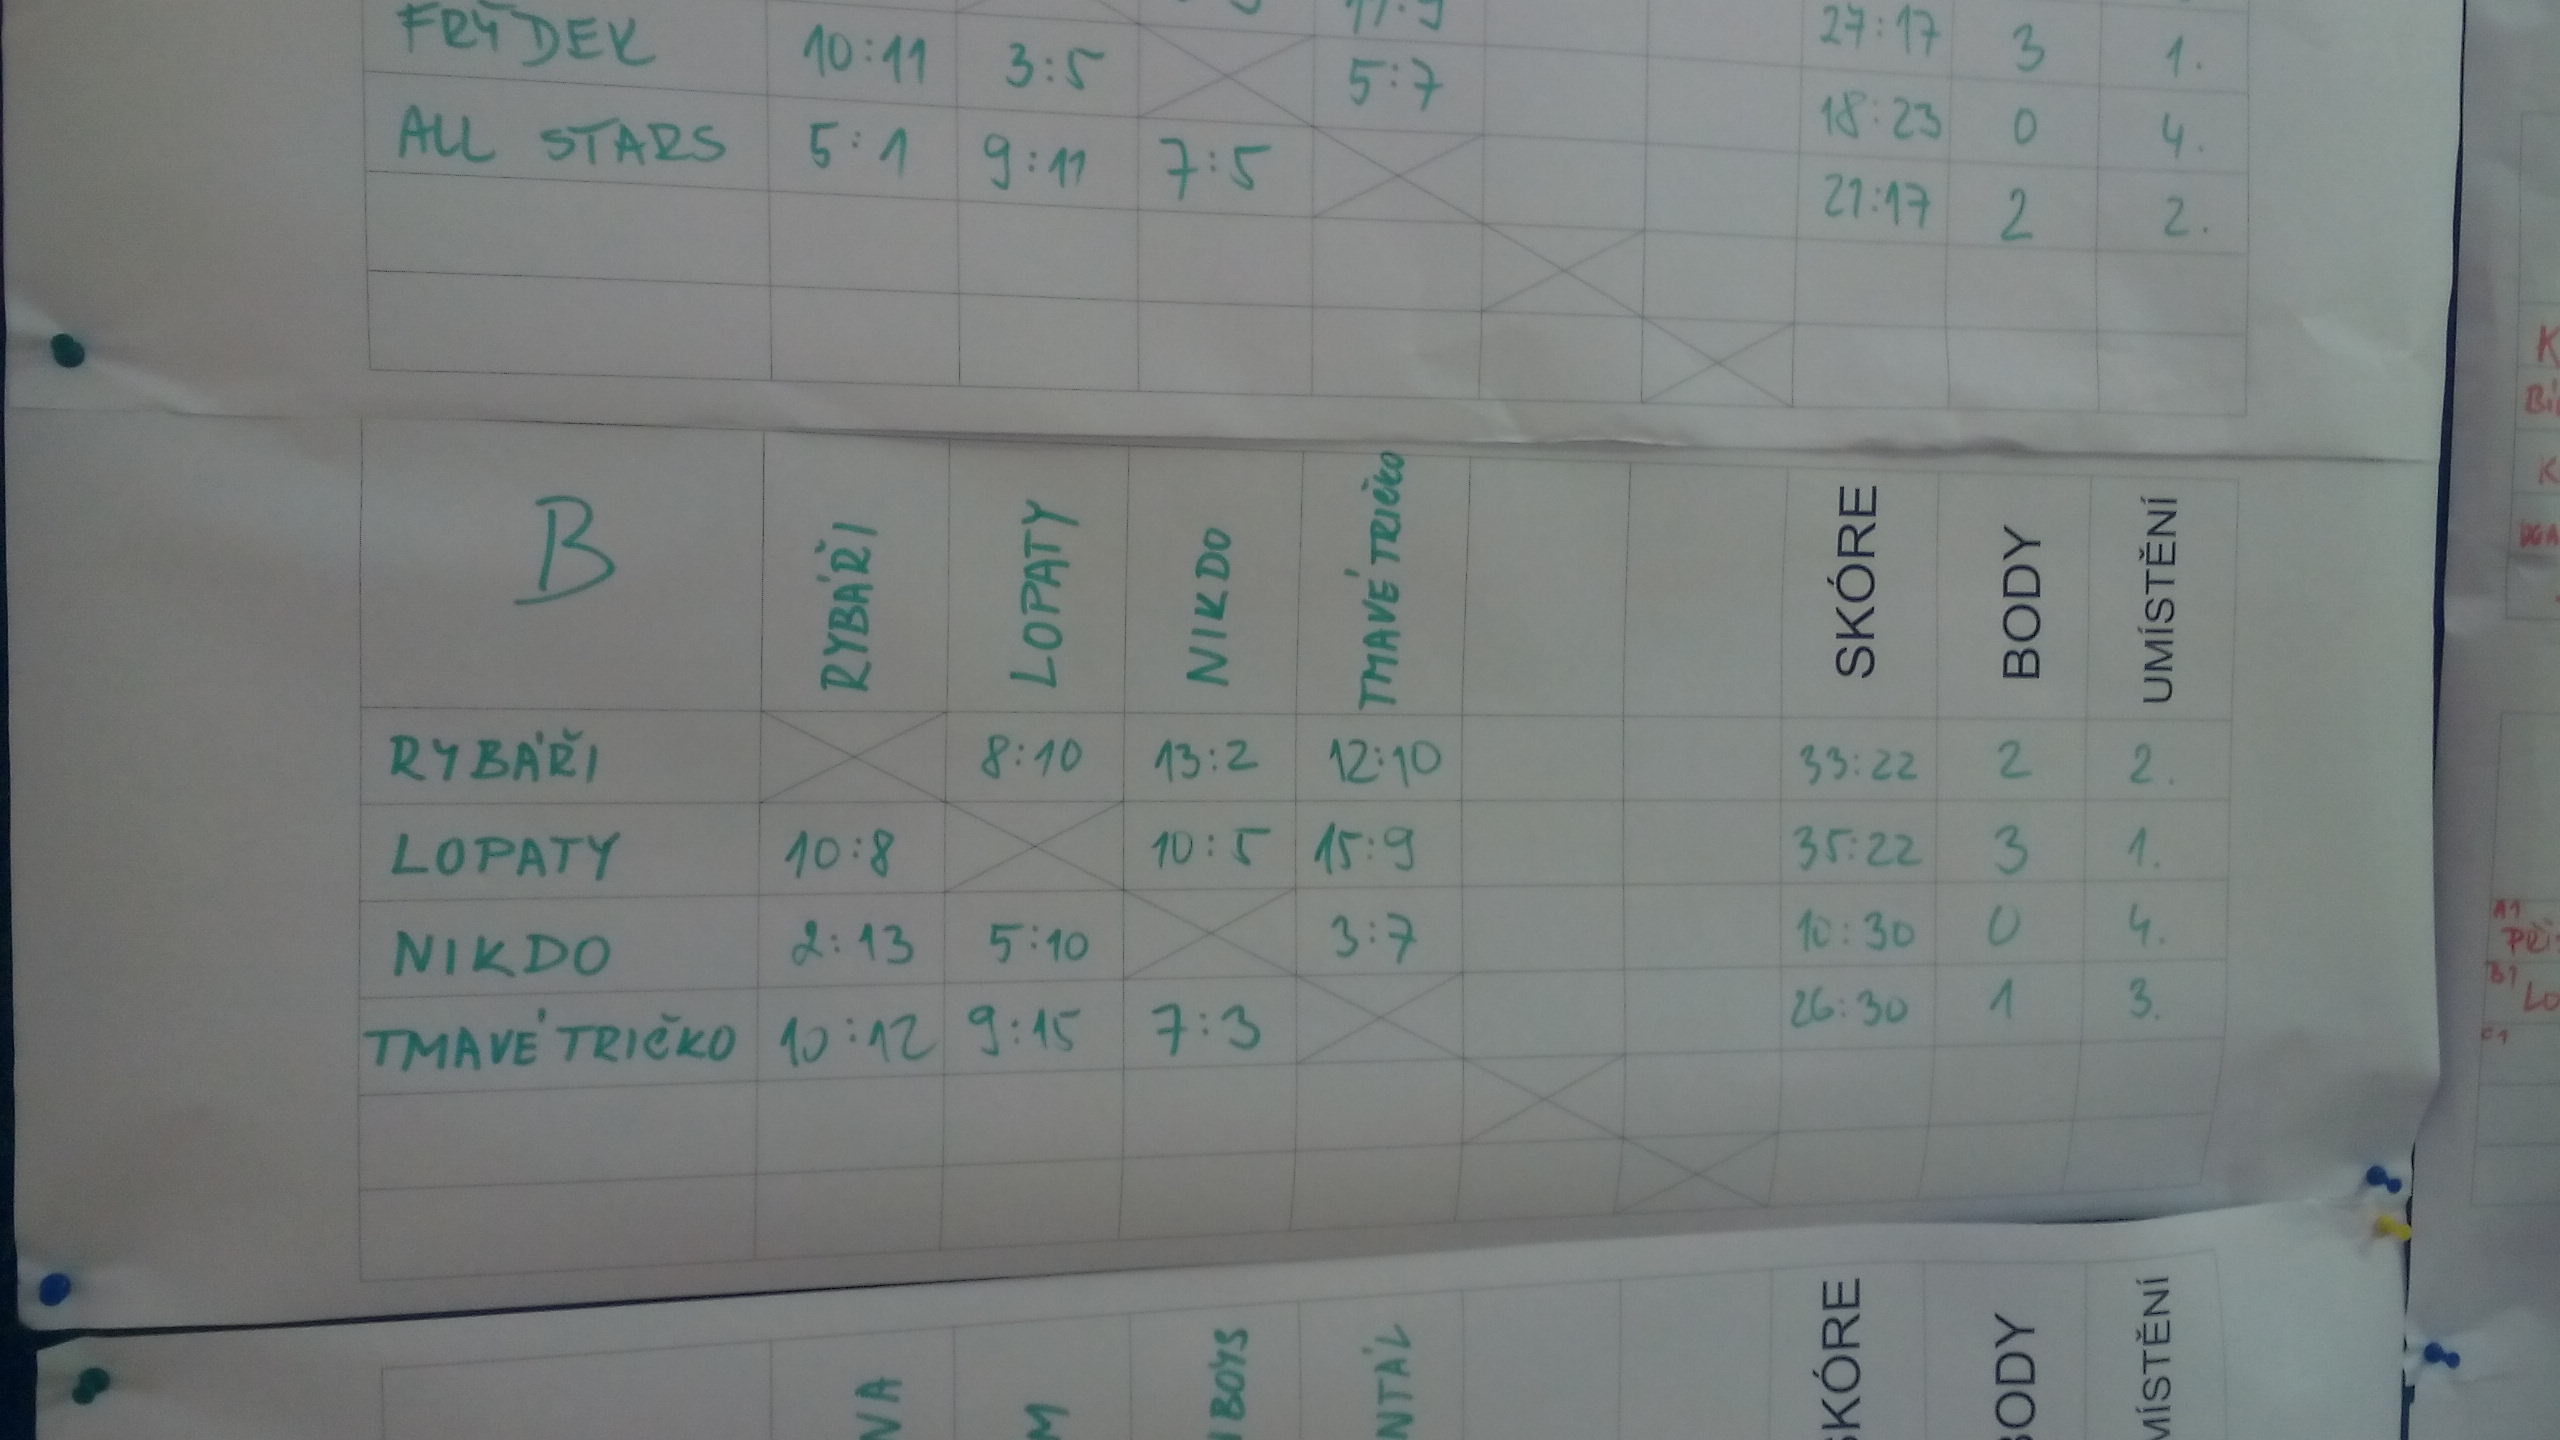 27:17 3 1.
FRÝDEK 10:11 3:5 5:7 18:23 0 4.
ALL STARS 5:1 9:11 7:5 21:17 2 2.
B RYBÁŘI LOPATY NIKDO TMAVÉ TRIČKO SKÓRE BODY UMÍSTĚNÍ
RYBÁŘI 8:10 13:2 12:10 33:22 2 2.
LOPATY 10:8 10:5 15:9 35:22 3 1.
NIKDO 2:13 5:10 3:7 10:30 0 4.
TMAVÉ TRIČKO 10:12 9:15 7:3 26:30 1 3.
SKÓRE BODY
A1
B1
C1